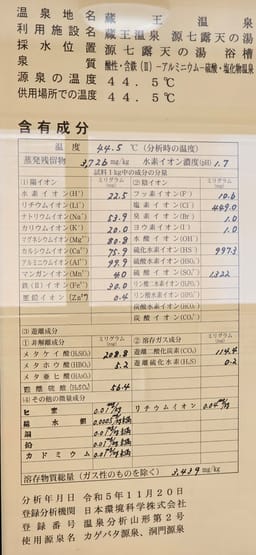 温泉地名 蔵王温泉
利用施設名 蔵王温泉 源七露天の湯
採水位置 源七露天の湯 浴槽
泉質 酸性・含鉄(Ⅱ)-アルミニウム-硫酸・塩化物温泉
源泉の温度 44.5℃
供用場所での温度 44.5℃
含有成分
温度 44.5 ℃(分析時の温度)
蒸発残留物 3,726 mg/kg 水素イオン濃度(pH) 1.7
試料1kg中の成分の分量
(1)陽イオン ミリグラム(mg) (2)陰イオン ミリグラム(mg)
水素イオン(H⁺) 22.5 フッ素イオン(F⁻) 10.6
リチウムイオン(Li⁺) 塩素イオン(Cl⁻) 449.0
ナトリウムイオン(Na⁺) 53.9 臭素イオン(Br⁻) 1.0
カリウムイオン(K⁺) 20.0 ヨウ素イオン(I⁻) 1.0
マグネシウムイオン(Mg²⁺) 80.8 水酸イオン(OH⁻)
カルシウムイオン(Ca²⁺) 75.9 硫化水素イオン(HS⁻)
アルミニウムイオン(Al³⁺) 99.9 硫酸イオン
マンガンイオン(Mn²⁺) 4.0 硫酸イオン(SO₄²⁻) 1322
鉄(Ⅱ)イオン(Fe²⁺) 30.0
亜鉛イオン(Zn²⁺) 0.4
炭酸イオン(CO₃²⁻)
(3)遊離成分
①非解離成分 ミリグラム(mg) ②溶存ガス成分 ミリグラム(mg)
メタケイ酸(H₂SiO₃) 208.8 遊離二酸化炭素(CO₂) 114.4
メタホウ酸(HBO₂) 5.2 遊離硫化水素(H₂S) 0.2
メタ亜ヒ酸(HAsO₂)
遊離硫酸(H₂SO₄) 56.4
(4)その他の微量成分
ヒ素 リチウムイオン
総水銀
銅
鉛
カドミウム
溶存物質総量(ガス性のものを除く) 3,439 mg/kg
分析年月日 令和5年11月20日
登録分析機関 日本環境科学株式会社
登録番号 温泉分析山形第2号
使用源泉名 カゲバタ源泉、洞門源泉